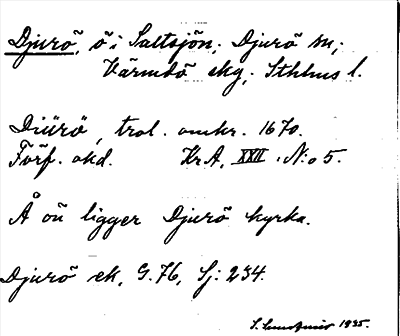 Djurö, ö i Saltsjön; Djurö sn;
Värmdö skg; Sthlms l.
Diürö, trol. omkr. 1670.
Förf. okd. Kr.A. XXII. N:o 5.
Å ön ligger Djurö kyrka.
Djurö ek, G. 76, Sj: 234.
S. 1935.